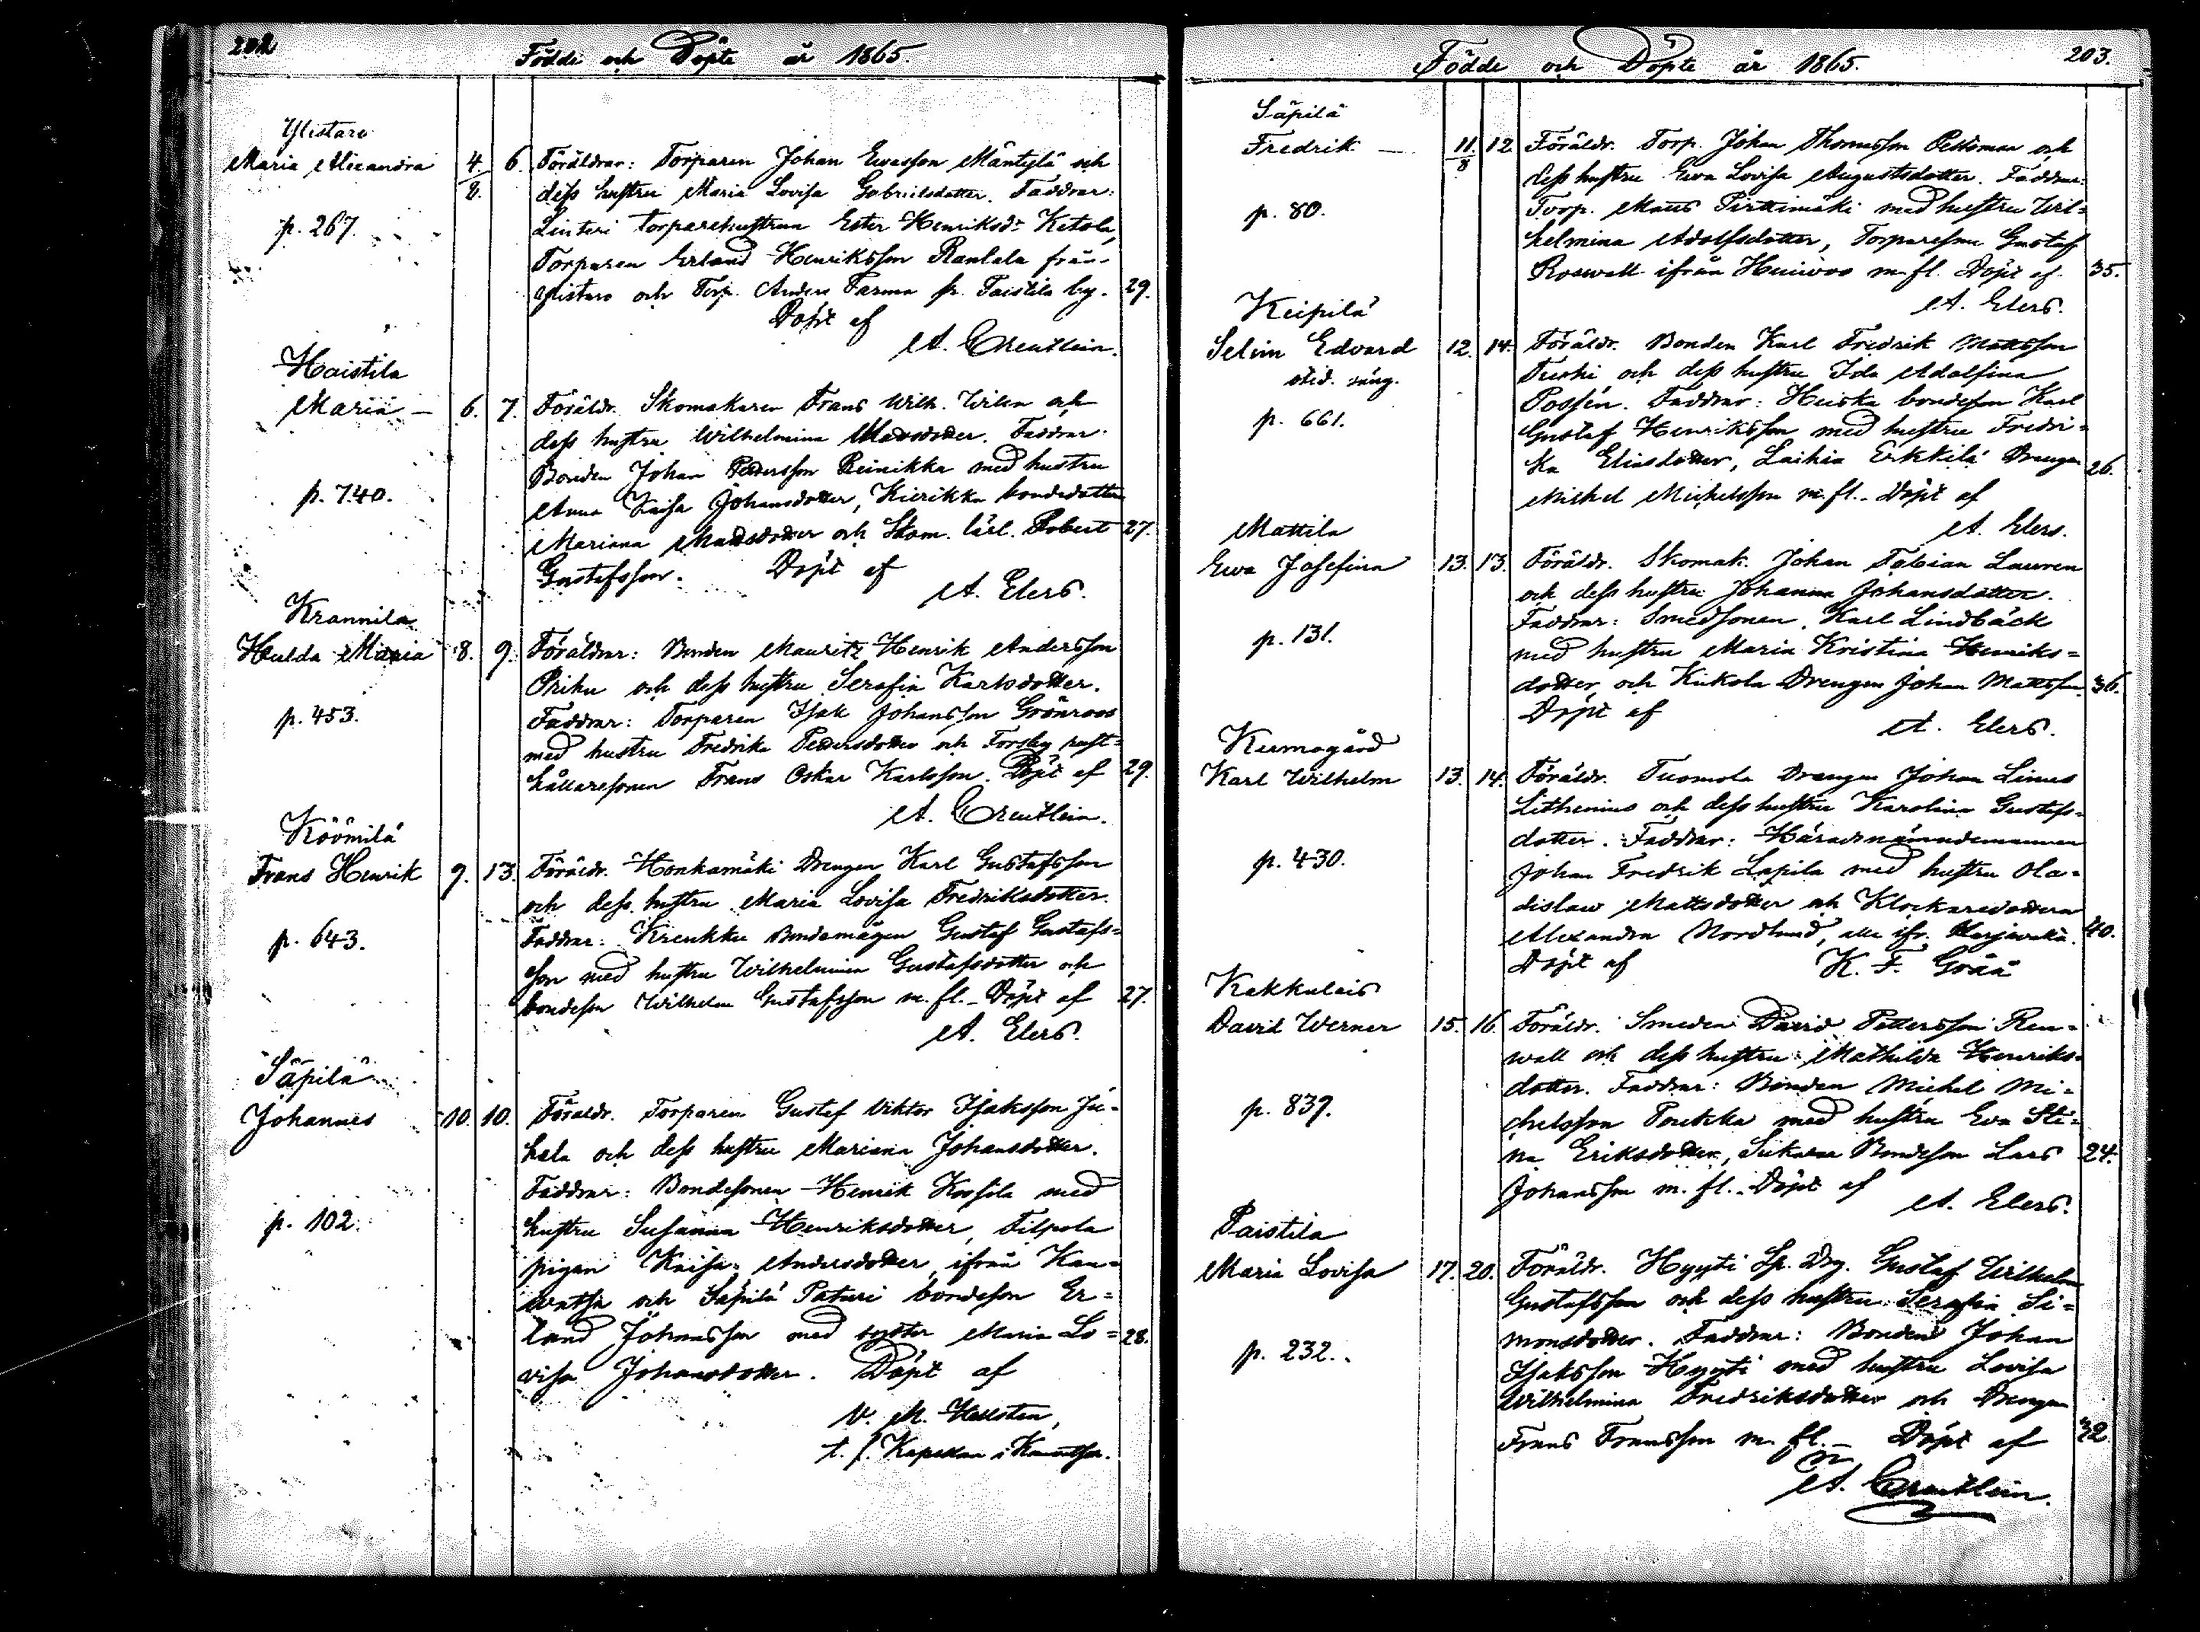 202
Födde och Döpte år 1865.
Ylistaro
Maria Alexandra 4/8. 6. Föräldrar: Torparen Johan Ewasson Mäntylä och
dess hustru Maria Lovisa Gabrielsdotter. Faddrar:
p. 267. Linteri torparehustrun Ester Henriksdr Ketola,
Torparen Erland Henriksson Rantala från
Ylistaro och Torp. Anders Farma fr. Taistila by. 29.
Döpt af
A. Creutlein.
Haistila
Maria — 6. 7. Föräldr. Skomakaren Frans Wilh. Wilen och
dess hustru Wilhelmina Madsdotter. Faddrar
Bonden Johan Pettersson Reinikka med hustru
p. 740. Anna Kaisa Johansdotter, Kierikka bondedotter
Mariana Madsdotter och Skom. lärl. Robert 27.
Gustafsson. Döpt af
A. Elers.
Krannila
Hulda Maria 8. 9. Föräldrar: Bonden Mauritz Henrik Andersson
Priku och dess hustru Serafia Karlsdotter.
p. 453. Faddrar: Torparen Isak Johansson Grönroos
med hustru Fredrika Pettersdotter och Forsby rust-
hållaresonen Frans Oskar Karlsson. Döpt af 29.
A. Creutlein.
Köömilä
Frans Henrik 9. 13. Föräldr. Honkamäki Drengen Karl Gustafsson
och dess hustru Maria Lovisa Fredriksdotter.
p. 643. Faddrar: Krenkku Bondemågen Gustaf Gustafs-
son med hustru Wilhelmina Gustafsdotter och
bondeson Wilhelm Gustafsson m. fl. Döpt af 27.
A. Elers.
Säpilä
Johannes 10. 10. Föräldr. Torparen Gustaf Viktor Isaksson Ju-
hala och dess hustru Mariana Johansdotter.
Faddrar: Bondesonen Henrik Koosila med
p. 102. hustru Susanna Henriksdotter, Tilpola
pigan Kaisa Andersdotter, ifrån Kau-
watsa och Säpilä Paturi bondeson Er-
land Johansson med syster Maria Lo- 28.
visa Johansdotter. Döpt af
V. M. Hallsten,
t. f. Kapellan i Kauvatsa.
Födde och Döpte år 1865. 203.
Säpilä
Fredrik — 11/8. 12 Föräldr. Torp. Johan Thomasson Peltoman och
dess hustru Ewa Lovisa Augustsdotter. Faddrar:
p. 80. Torp. Matts Pirttimäki med hustru Wil-
helmina Adolfsdotter, Torpareson Gustaf
Roswall ifrån Huiwoo m. fl. Döpt af 35.
A. Elers.
Keipilä
Selim Edvard 12. 14. Föräldr. Bonden Karl Fredrik Mattsson
Tuski och dess hustru Ida Adolfina
p. 661. Possén. Faddrar: Heiska bondeson Karl
Gustaf Henriksson med hustru Fredri-
ka Eliasdotter, Laihia Erkkilä Drengen 26.
Michel Michelsson m. fl. Döpt af
A. Elers.
Mattila
Ewa Josefina 13. 13. Föräldr. Skomak. Johan Fabian Lauren
och dess hustru Johanna Johansdotter.
p. 131. Faddrar: Smedsonen Karl Lindbäck
med hustru Maria Kristina Henriks-
dotter och Kukola Drengen Johan Mattsson. 36.
Döpt af
A. Elers.
Kurmogård
Karl Wilhelm 13. 14. Föräldr. Tuomola Drengen Johan Linus
Lithenius och dess hustru Karolina Gustafs-
dotter. Faddrar: Häradsnämndemannen
p. 430. Johan Fredrik Lapila med hustru Ola-
dislawa Mattsdotter och Klockaredottern
Alexandra Nordlund, alla ifr. Harjavalta. 40.
Döpt af K. F. Gråå
Kakkulais
David Werner 15. 16. Föräldr. Smeden David Pettersson Ren-
wall och dess hustru Mathilda Henriks-
dotter. Faddrar: Bonden Michel Mi-
p. 839. chelsson Poukka med hustru Eva Sti-
na Eriksdotter, Sukana Bondeson Lars 24.
Johansson m. fl. Döpt af
A. Elers.
Paistila
Maria Lovisa 17. 20. Föräldr. Hyyti Sp. Drg. Gustaf Wilhelm
Gustafsson och dess hustru Serafia Si-
p. 232. monsdotter. Faddrar: Bonden Johan
Isaksson Hyyti med hustru Lovisa
Wilhelmina Fredriksdotter och Drengen
Frans Fransson m. fl. — Döpt af 32.
A. Creutlein.